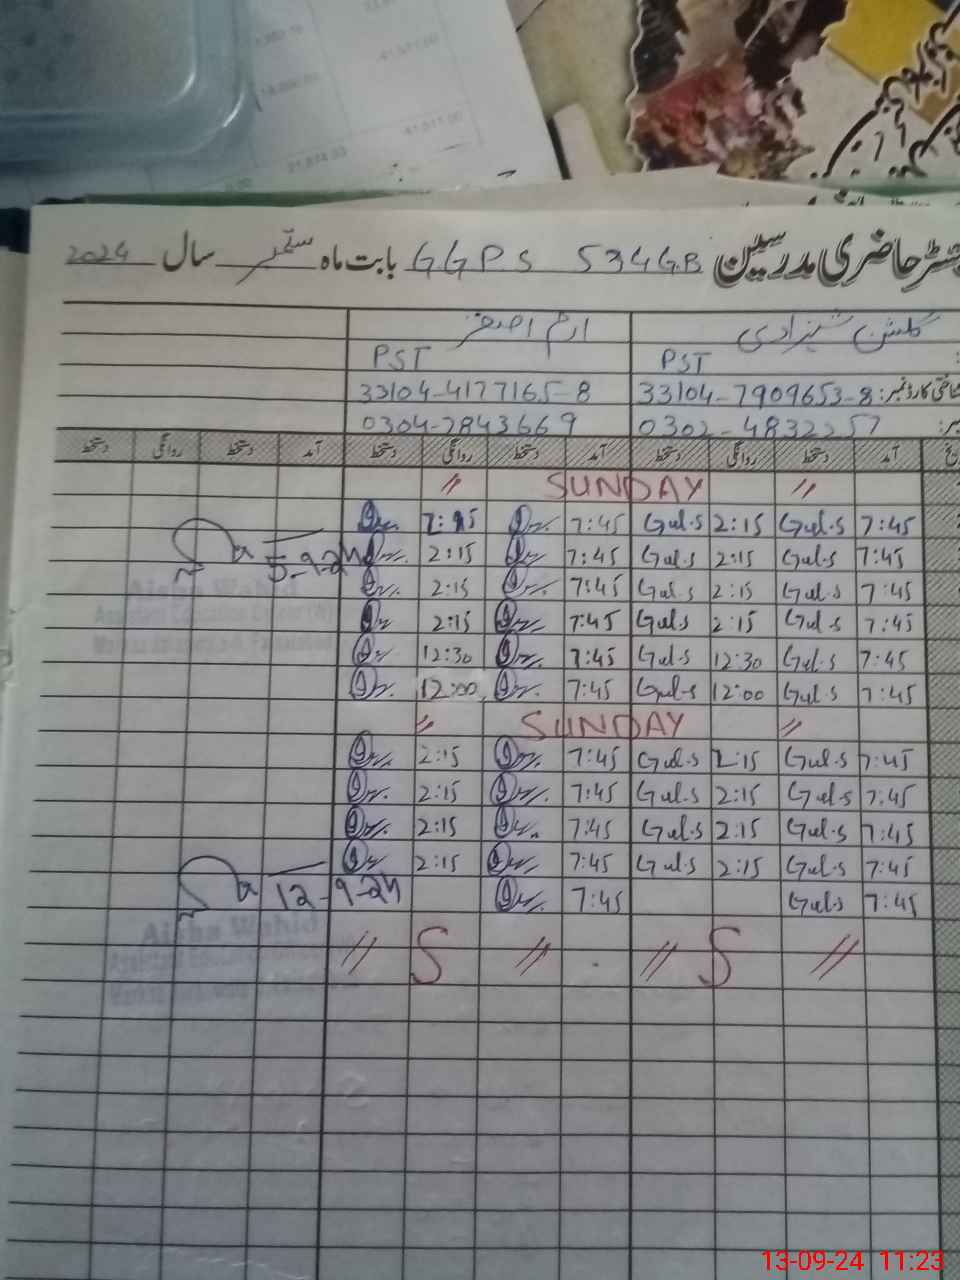 رجسٹر حاضری مدرسین GGPS 534GB بابت ماہ ستمبر سال 2024
گلشن شہزادی ارم اصغر
PST PST
شناختی کارڈ نمبر: 33104-7909653-8 33104-4177165-8
0302-4832257 0304-2843669
آمد دستخط روانگی دستخط آمد دستخط روانگی دستخط آمد دستخط روانگی دستخط
〃 SUNDAY 〃
7:45 Gul.s 2:15 Gul.s 7:45
7:45 Gul.s 2:15 Gul.s 7:45 2:15 5-9-24
7:45 Gul.s 2:15 Gul.s 7:45 2:15
Aisha Wahid
7:45 Gul.s 2:15 Gul.s 7:45 2:15
7:45 Gul.s 12:30 Gul.s 7:45 12:30
7:45 Gul.s 12:00 Gul.s 7:45 12:00
〃 SUNDAY 〃
7:45 Gul.s 2:15 Gul.s 7:45 2:15
7:45 Gul.s 2:15 Gul.s 7:45 2:15
7:45 Gul.s 2:15 Gul.s 7:45 2:15
7:45 Gul.s 2:15 Gul.s 7:45 2:15
7:45 Gul.s 7:45 12-9-24
Aisha Wahid
〃 S 〃 〃 S 〃
13-09-24 11:23